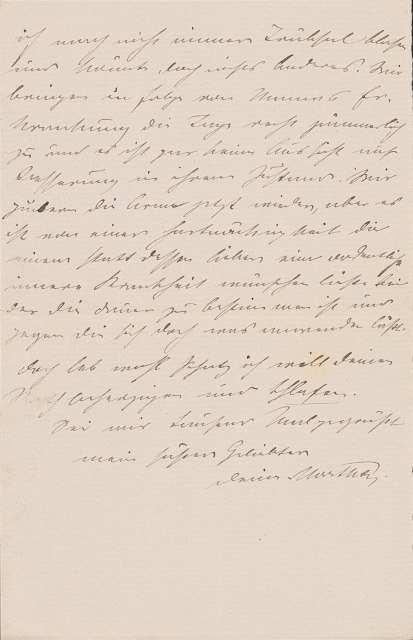 ich mag nicht immer Trübsal blasen
und könnte doch nichts Anderes. Wir
bringen in folge von Mamas Er-
krankung die Tage recht jämmerlich
zu und es ist gar keine Aussicht auf
Besserung in ihrem Zustand. Wir
die Arme jetzt wieder, aber es
ist von einer Hartnäckigkeit die
einem statt dessen lieber eine ordentliche
innere Krankheit wünschen ließe bei
der die dauer zu bestimmen ist und
gegen die sich doch was anwenden läßt.
doch leb wohl Schatz ich will deinen
Rath beherzigen und schlafen.
Sei mir tausend Mal gegrüßt
mein süßer Geliebter
deine Martha.